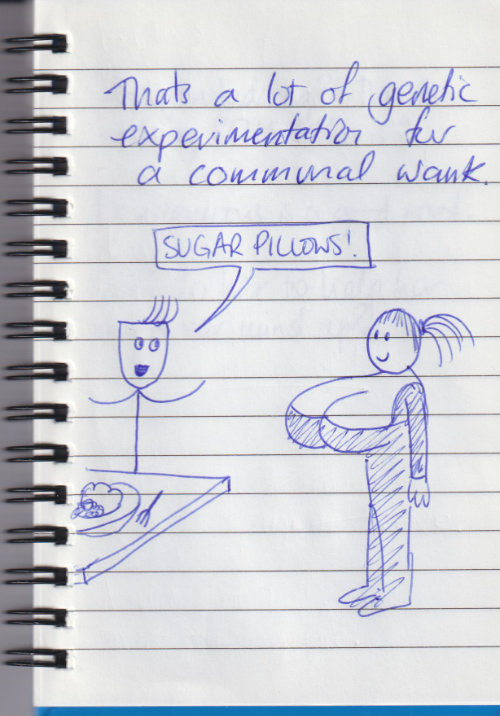 Thats a lot of genetic
experimentation for
a communal wank.
SUGAR PILLOWS!